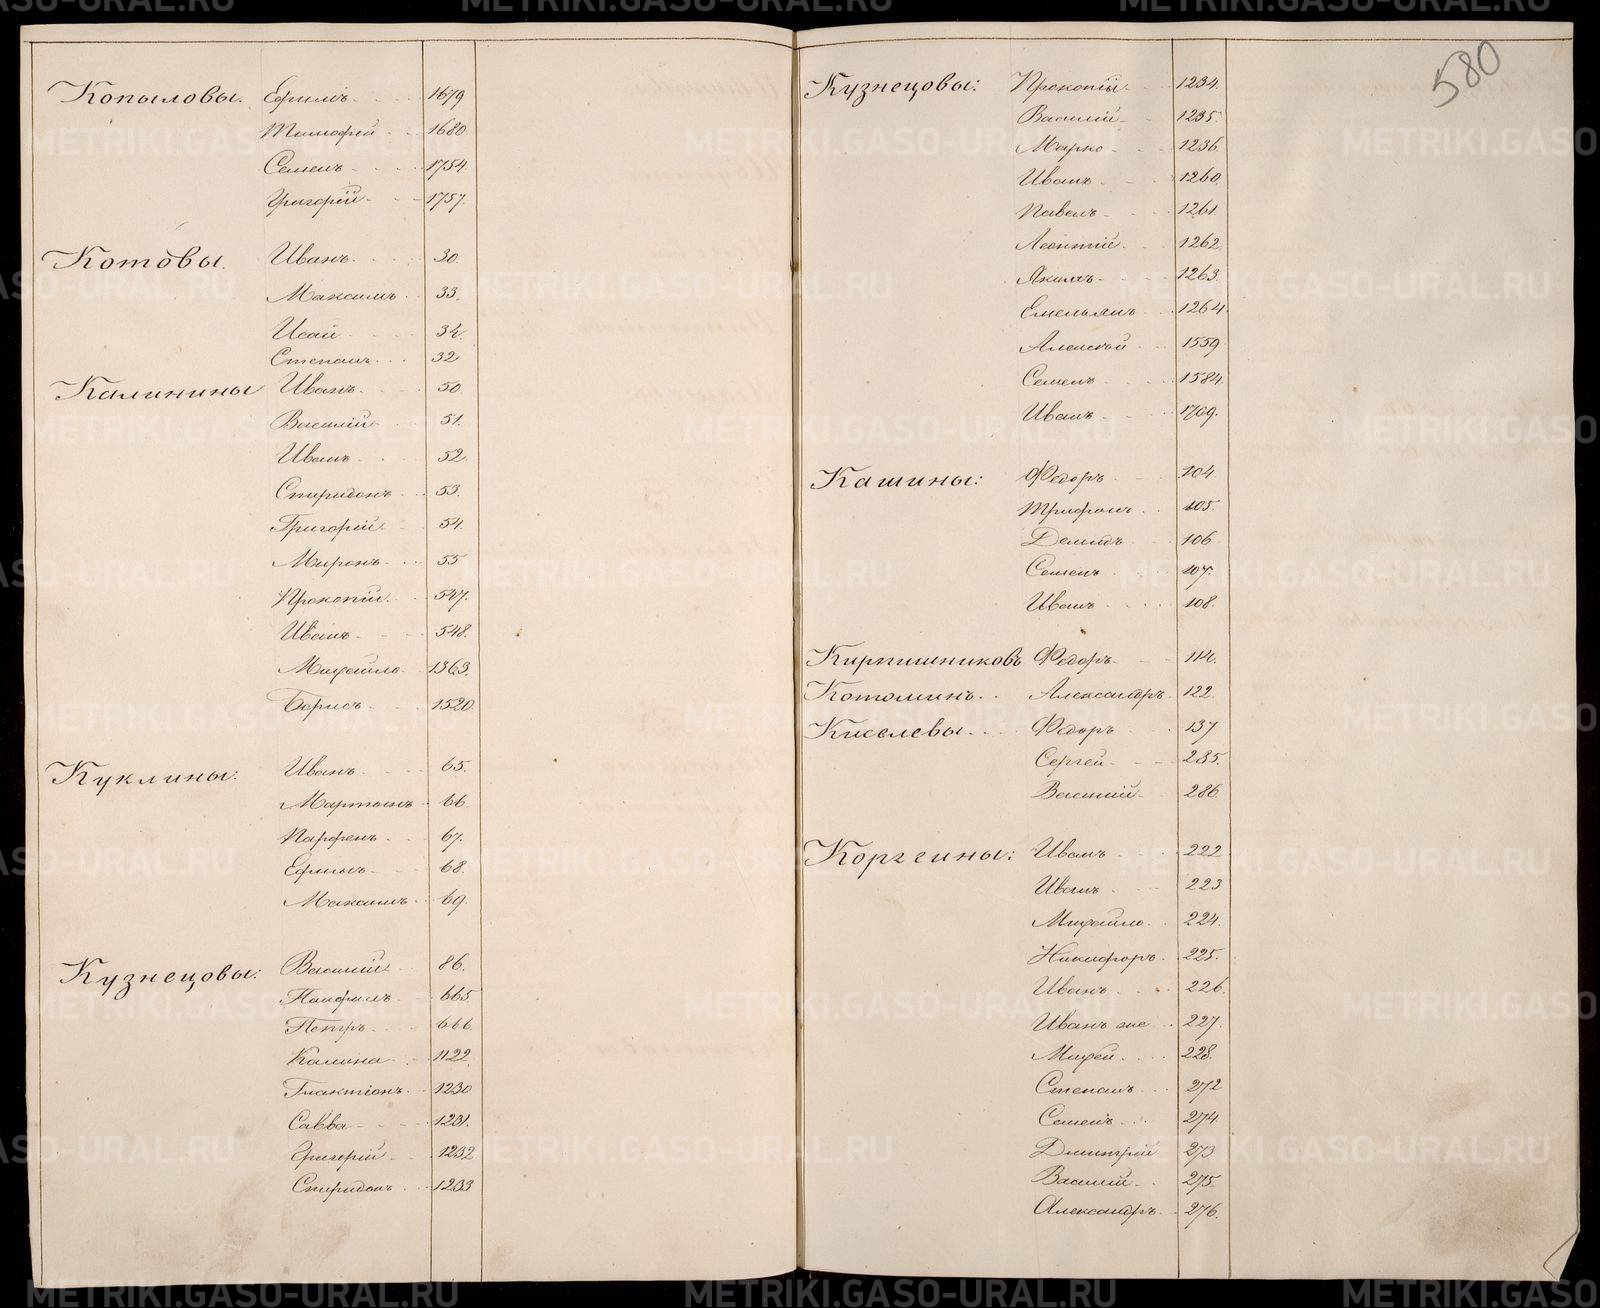 Копыловы. Ефимъ 1679
Тимофей 1680
Семенъ 1754
Григорій 1757.
Котовы Иванъ 30.
Максимъ 33.
Исай 34.
Степанъ 32
Калинины Иванъ 50
Василій 51.
Иванъ 52
Спиридонъ 53.
Григорій 54
Миронъ 55
Прокопій 547.
Иванъ 548.
Михайло 1363.
Борисъ 1520
Куклины: Иванъ 65.
Мартынъ 66
Парфенъ 67.
Ефимъ 68.
Максимъ 69.
Кузнецовы: Василій 86.
Панфилъ 665
Петръ 666
Калина 1122
Галактіонъ 1230
Савва 1231.
Григорій 1232
Спиридонъ 1233
580
Кузнецовы: Прокопій 1234.
Василій 1235.
Марко 1236.
Иванъ 1260.
Павелъ 1261.
Леонтій 1262
Якимъ 1263.
Емельянъ 1264.
Алексѣй 1559
Семенъ 1584.
Иванъ 1769.
Кашины: Федоръ 104
Трифонъ 105.
Демидъ 106
Семенъ 107.
Иванъ 108.
Кирпишниковъ Федоръ 114.
Котоминъ Александръ 122
Киселевы Федоръ 137
Сергей 285.
Василій 286
Коргины: Иванъ 222
Иванъ 223
Михайло 224.
Никифоръ 225.
Иванъ 226.
Иванъ же 227.
Михей 228.
Степанъ 272
Семенъ 274
Дмитрій 273
Василій 275.
Александръ 276.
METRIKI.GASO-URAL.RU